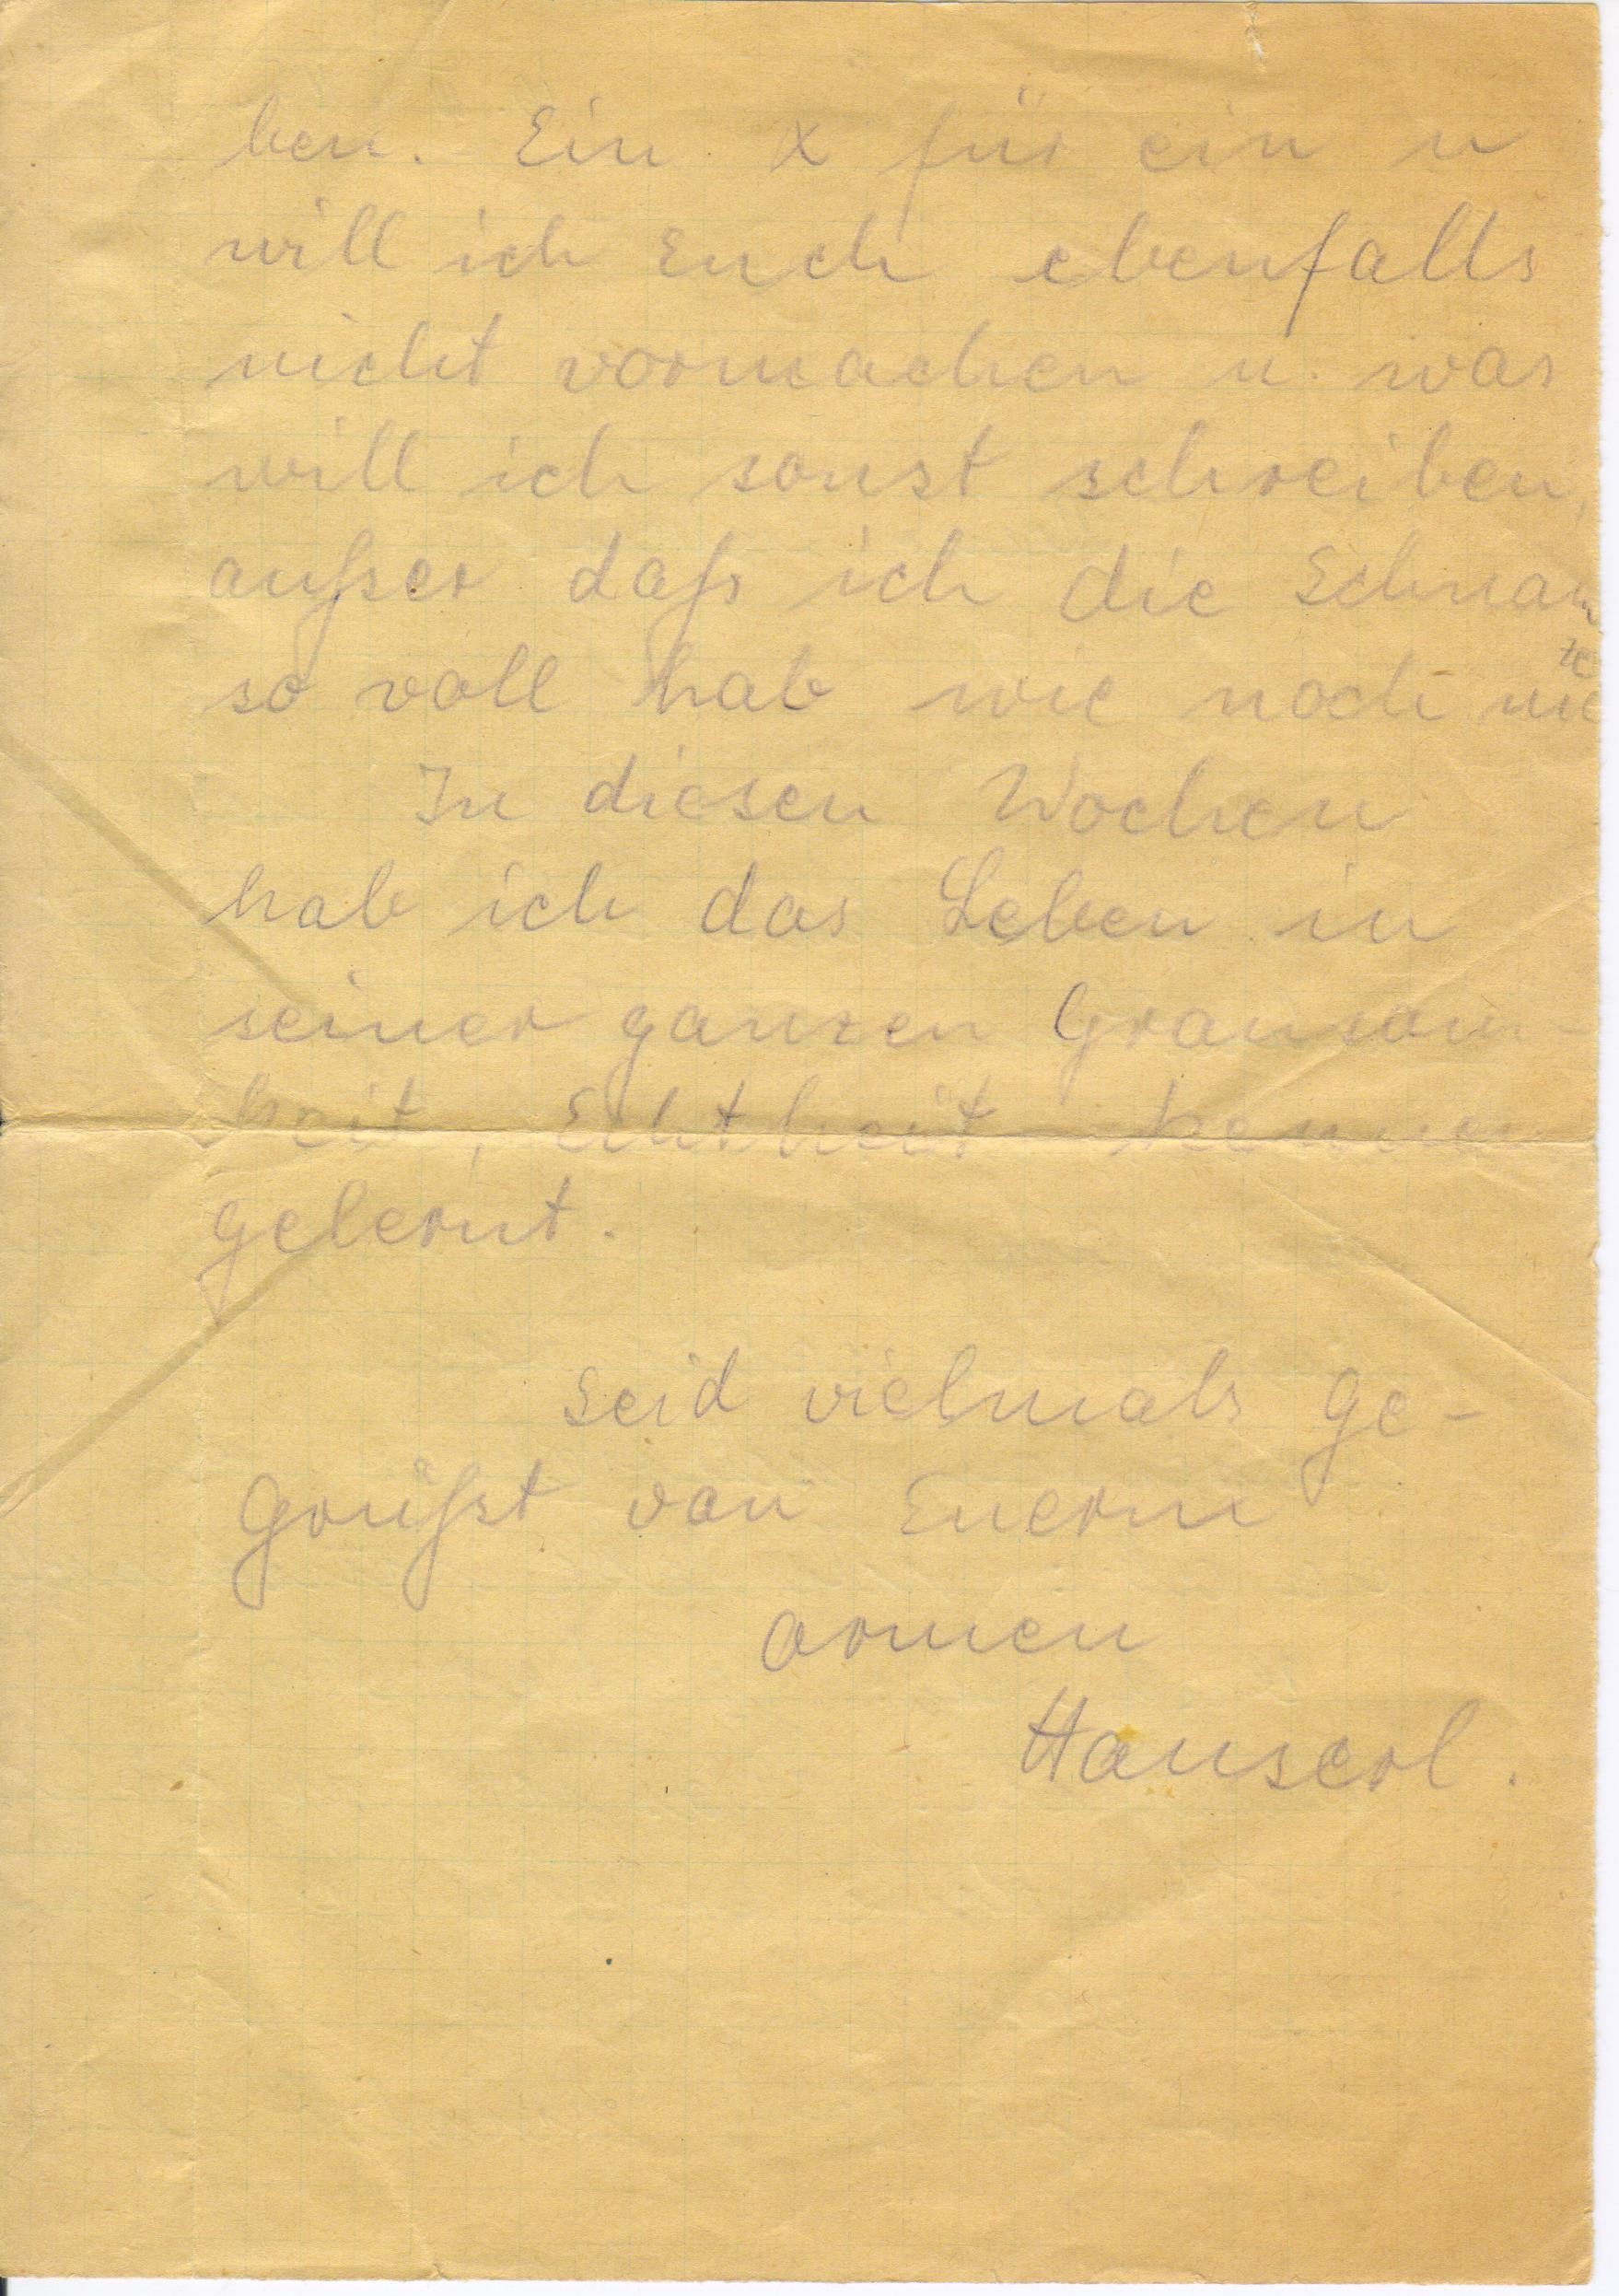 ben. Ein x für ein u
will ich Euch ebenfalls
nicht vormachen u. was
will ich sonst schreiben,
außer daß ich die Schnau
ze
so voll hab wie noch nie
In diesen Wochen
hab ich das Leben in
seiner ganzen Grausam-
keit, Echtheit kennen
gelernt.
Seid vielmals ge-
grüßt von Euerm
armen
Hanserl.